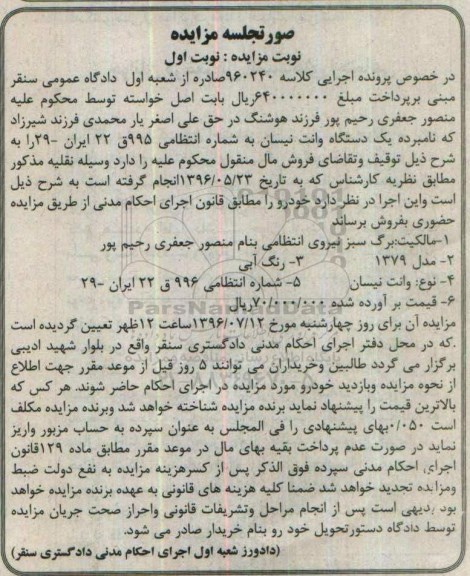 صورتجلسه مزایده
نوبت مزایده : نوبت اول
در خصوص پرونده اجرایی کلاسه ۹۶۰۲۴۰صادره از شعبه اول دادگاه عمومی سنقر
مبنی برپرداخت مبلغ ۶۴۰۰۰۰۰۰۰ریال بابت اصل خواسته توسط محکوم علیه
منصور جعفری رحیم پور فرزند هوشنگ در حق علی اصغر یار محمدی فرزند شیرزاد
که نامبرده یک دستگاه وانت نیسان به شماره انتظامی ۹۹۵ق ۲۲ ایران -۲۹را به
شرح ذیل توقیف وتقاضای فروش مال منقول محکوم علیه را دارد وسیله نقلیه مذکور
مطابق نظریه کارشناس که به تاریخ ۱۳۹۶/۰۵/۲۳انجام گرفته است به شرح ذیل
است واین اجرا در نظر دارد خودرو را مطابق قانون اجرای احکام مدنی از طریق مزایده
حضوری بفروش برساند
۱-مالکیت:برگ سبز نیروی انتظامی بنام منصور جعفری رحیم پور
۲- مدل ۱۳۷۹ ۳- رنگ آبی
۴- نوع: وانت نیسان ۵- شماره انتظامی ۹۹۶ ق ۲۲ ایران -۲۹
۶- قیمت بر آورده شده ۷۰/۰۰۰/۰۰۰ریال
مزایده آن برای روز چهارشنبه مورخ ۱۳۹۶/۰۷/۱۲ساعت ۱۲ظهر تعیین گردیده است
.که در محل دفتر اجرای احکام مدنی دادگستری سنقر واقع در بلوار شهید ادیبی
برگزار می گردد طالبین وخریداران می توانند ۵ روز قبل از موعد مقرر جهت اطلاع
از نحوه مزایده وبازدید خودرو مورد مزایده در اجرای احکام حاضر شوند. هر کس که
بالاترین قیمت را پیشنهاد نماید برنده مزایده شناخته خواهد شد وبرنده مزایده مکلف
است ۰/۰۵۰بهای پیشنهادی را فی المجلس به عنوان سپرده به حساب مزبور واریز
نماید در صورت عدم پرداخت بقیه بهای مال در موعد مقرر مطابق ماده ۱۲۹قانون
اجرای احکام مدنی سپرده فوق الذکر پس از کسرهزینه مزایده به نفع دولت ضبط
ومزایده تجدید خواهد شد ضمنا کلیه هزینه های قانونی به عهده برنده مزایده خواهد
بود بدیهی است پس از انجام مراحل وتشریفات قانونی واحراز صحت جریان مزایده
توسط دادگاه دستورتحویل خود رو بنام خریدار صادر می شود.
(دادورز شعبه اول اجرای احکام مدنی دادگستری سنقر)
ParsNamadData